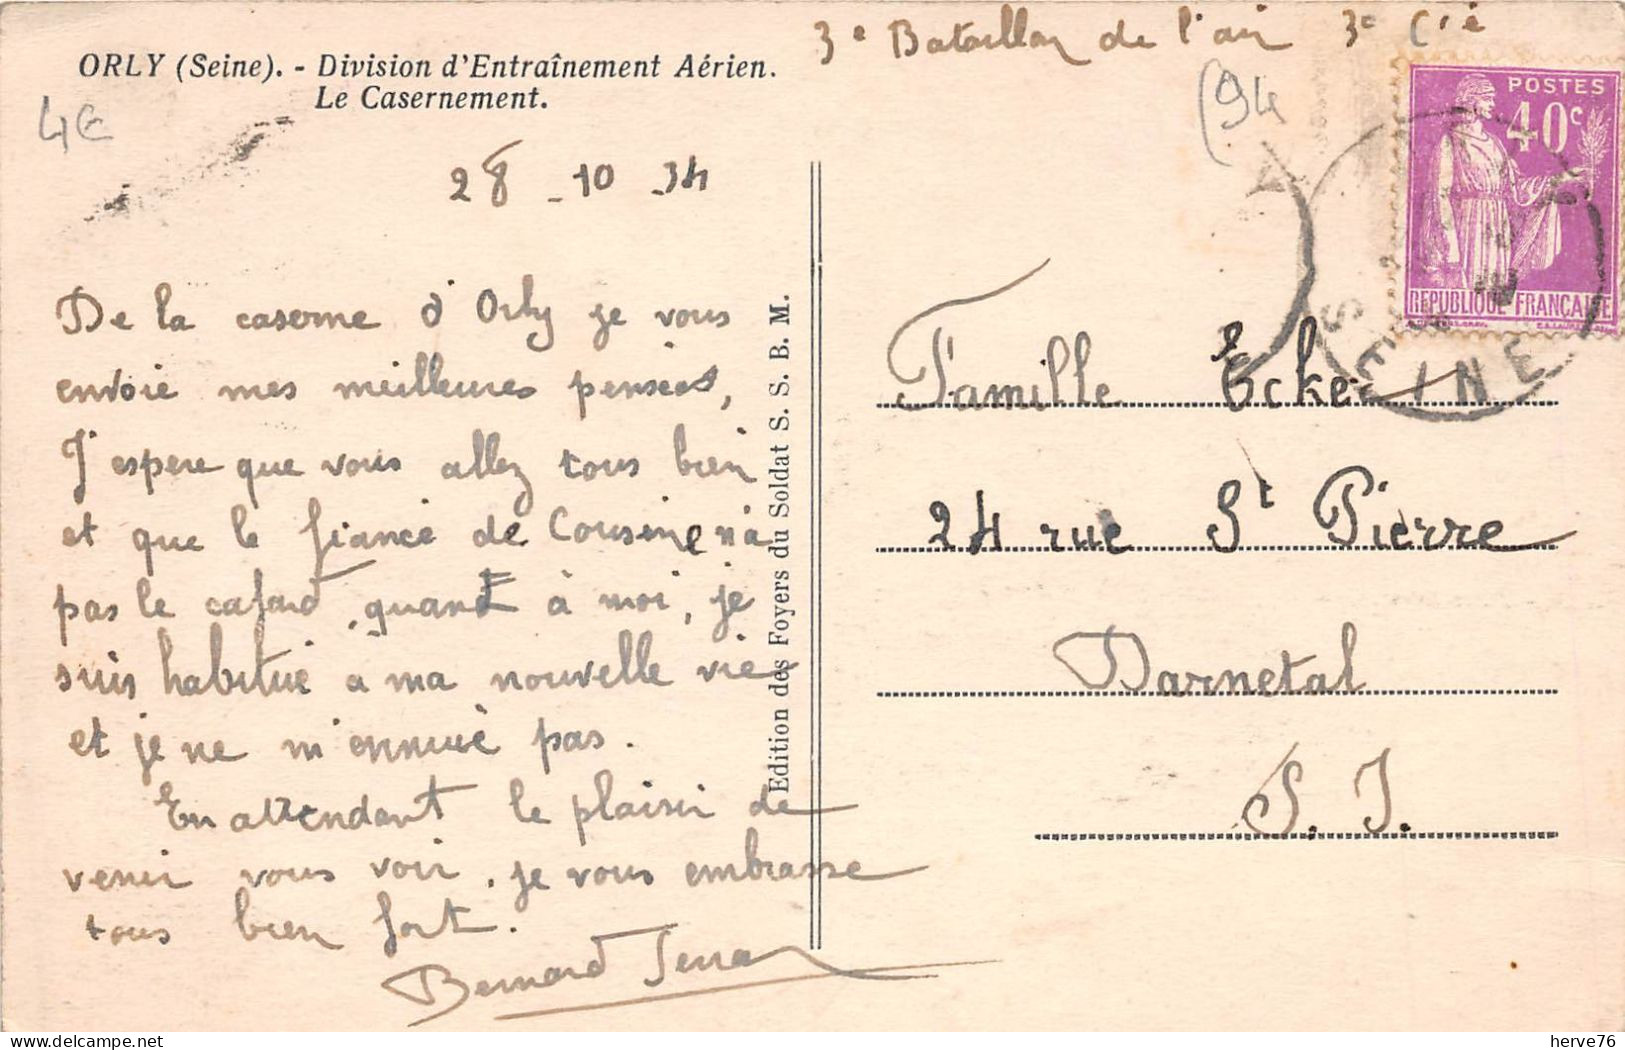 3e Bataillon de l'air 3e Cie
ORLY (Seine). - Division d'Entraînement Aérien.
Le Casernement.
4€
(94
28 - 10 - 34
POSTES
40c
REPUBLIQUE FRANÇAISE
SEINE
De la caserne d'Orly je vous
envoie mes meilleures pensées,
J'espere que vous allez tous bien
et que le fiancé de Cousine n'a
pas le cafard, quand à moi, je
suis habitué a ma nouvelle vie
et je ne m'ennuie pas.
En attendant le plaisir de
venir vous voir, je vous embrasse
tous bien fort.
Bernard
Edition des Foyers du Soldat S. S. B. M.
Famille Ecker
24 rue St Pierre
Darnetal
S. I.
herve76